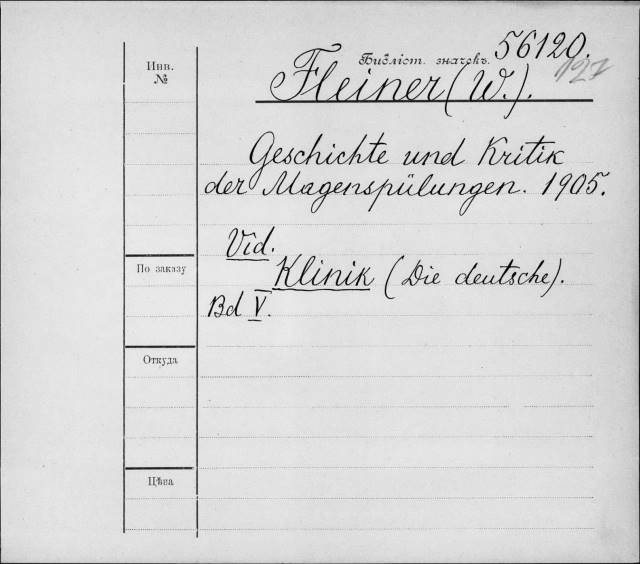 Инв.
№
Библіот. значекъ. 56120.
127
Fleiner (W.).
Geschichte und Kritik
der Magenspülungen. 1905.
Vid.
Klinik (Die deutsche).
Bd V.
По заказу
Откуда
Цѣна